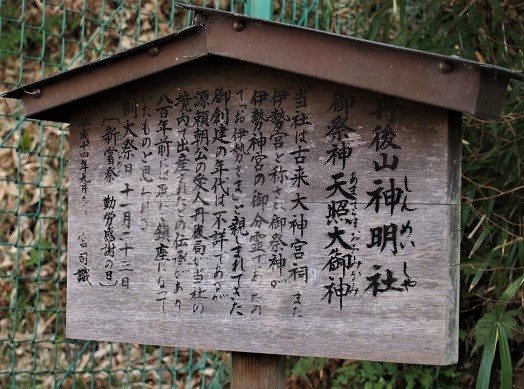 丹後山神明社
しんめいしゃ
御祭神 天照大御神
あまてらすおおみかみ
当社は古来大神宮祠 また
伊勢宮と称され御祭神が
伊勢神宮の御分霊であるの
で「お伊勢さま」と親しまれてきた
御創建の年代は不詳であるが
源頼朝公の愛人丹後局が当社の
境内で出産されたとの伝承があり
八百年前には正に鎮座になって
いたものと思われる
例大祭日 十一月二十三日
〔新嘗祭 勤労感謝の日〕
平成十四年 宮司識